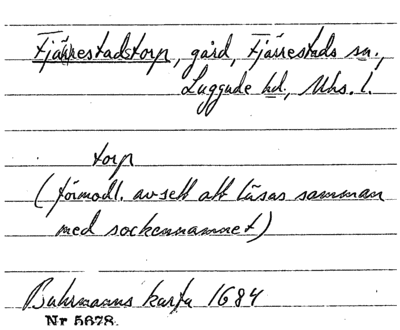 Fjärrestadstorp, gård, Fjärrestads sn.,
Luggude hd., Mhs. l.
torp
(förmodl. avsett att läsas samman
med sockennamnet)
Buhrmanns karta 1684
Nr 5678.